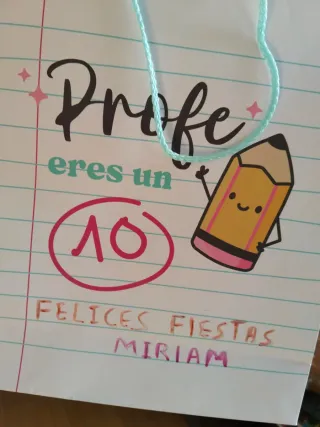 Profe
eres un
10
FELICES FIESTAS
MIRIAM